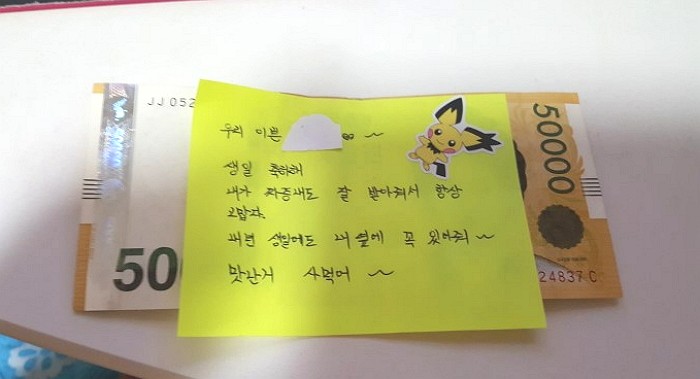 JJ 052
우리 이쁜 ~
생일 축하해
내가 짜증내도 잘 받아줘서 항상
고맙쟈.
내년 생일에도 내 옆에 꼭 있어줘 ~
맛난거 사먹어 ~
50000
500
24837 C